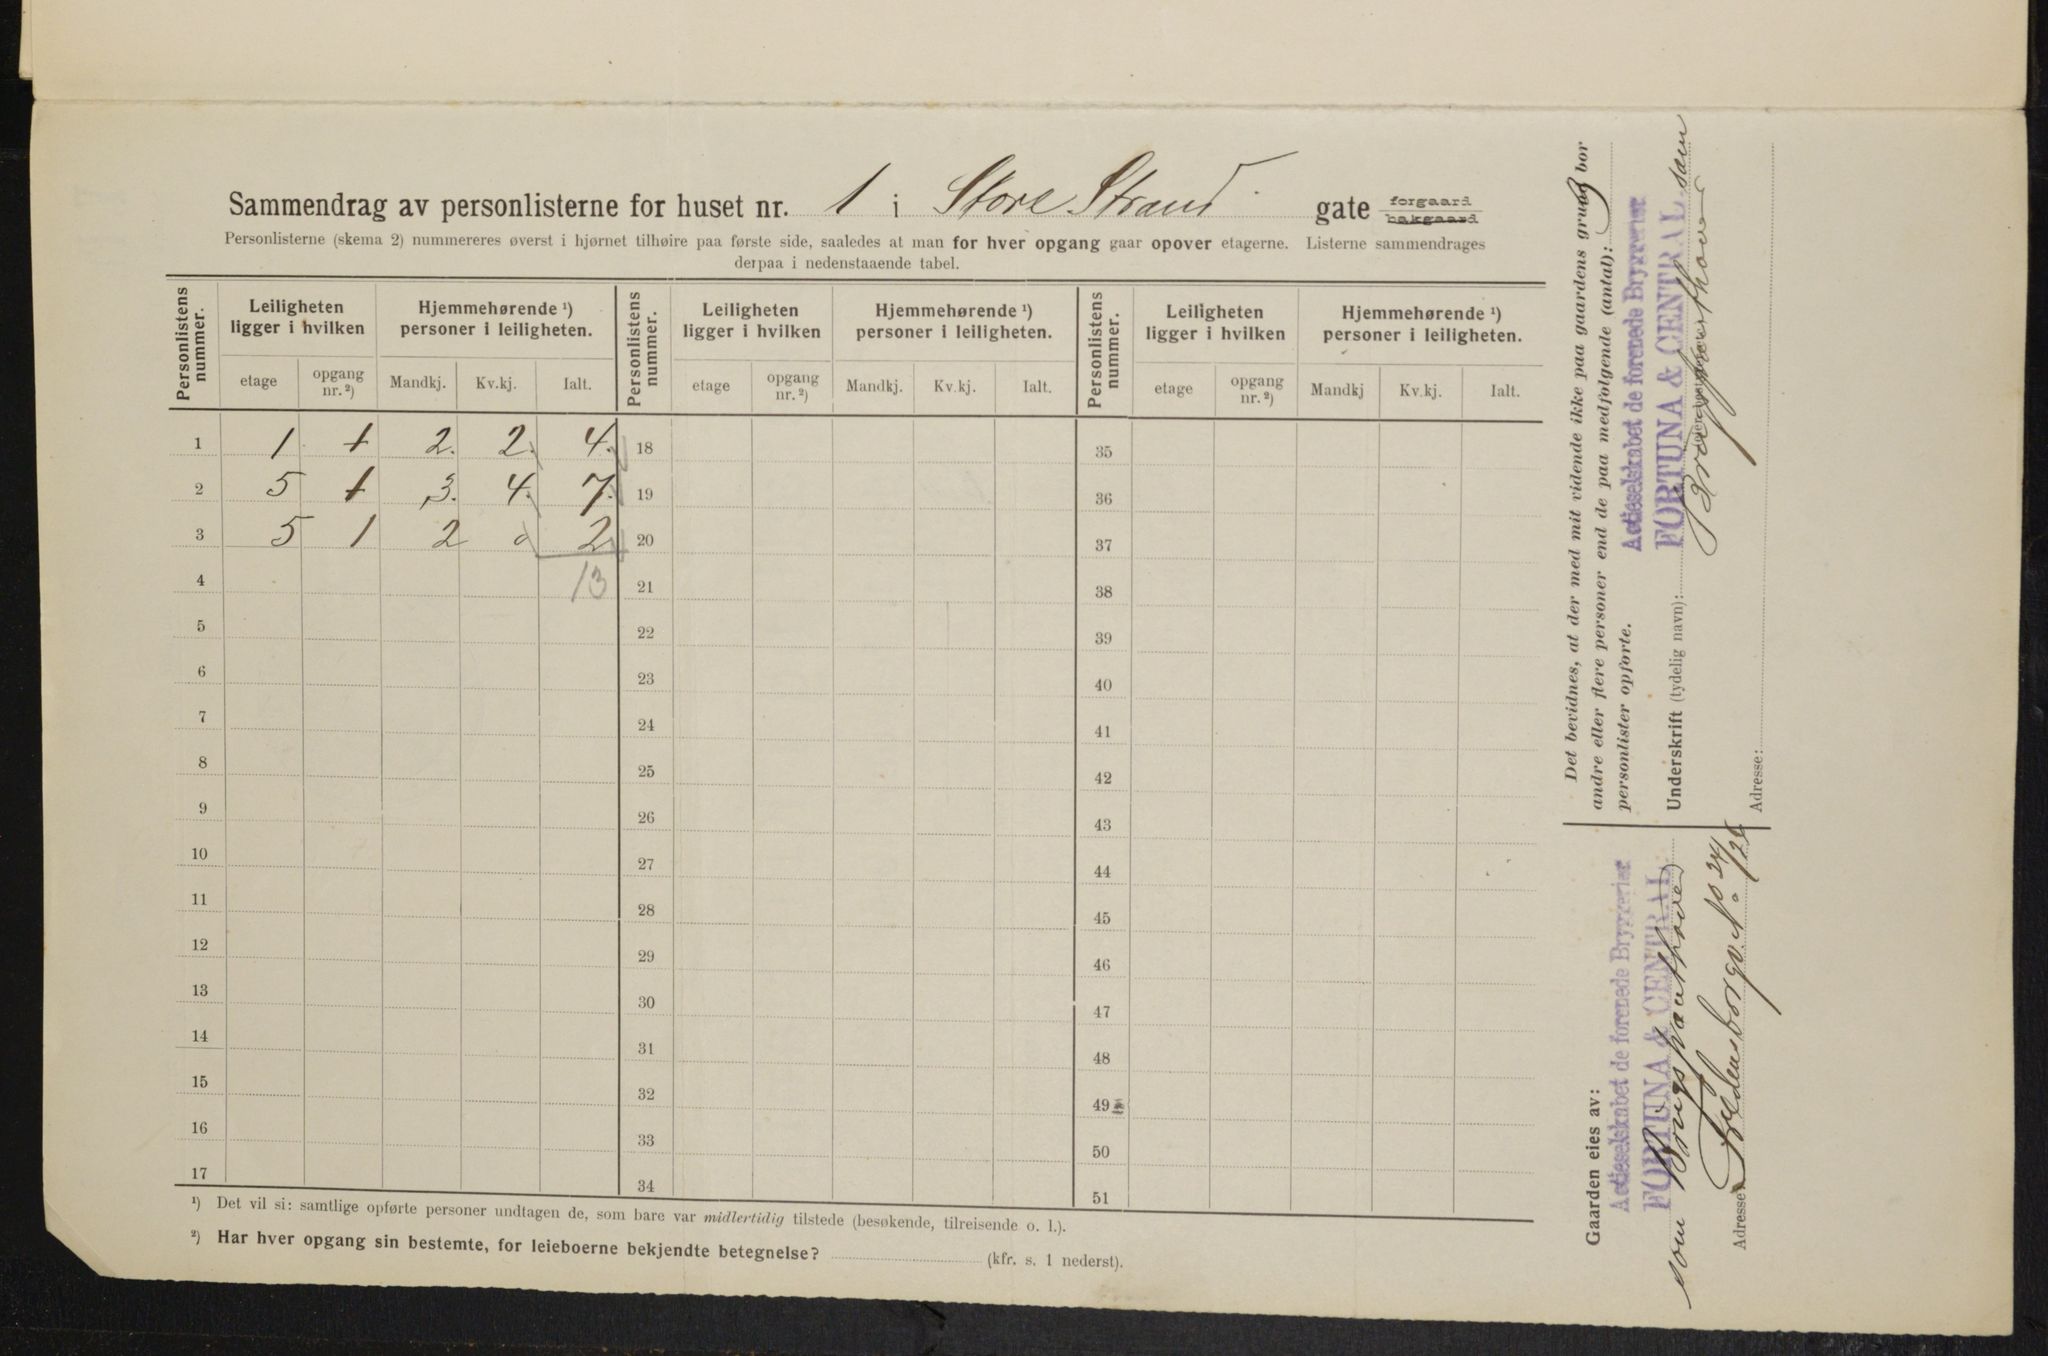 Sammendrag av personlisterne for huset nr. 1 i Store Strand gate forgaard bakgaard
Personlisterne (skema 2) nummereres øverst i hjørnet tilhøire paa første side, saaledes at man for hver opgang gaar opover etagerne. Listerne sammendrages
derpaa i nedenstaaende tabel.
Personlistens nummer. Leiligheten ligger i hvilken Hjemmehørende ¹) personer i leiligheten. Personlistens nummer. Leiligheten ligger i hvilken Hjemmehørende ¹) personer i leiligheten. Personlistens nummer. Leiligheten ligger i hvilken Hjemmehørende ¹) personer i leiligheten.
etage opgang nr. ²) Mandkj. Kv.kj. Ialt. etage opgang nr. ²) Mandkj. Kv.kj. Ialt. etage opgang nr. ²) Mandkj Kv.kj. Ialt.
1 1 1 2. 2. 4. 18 35
2 5 1 3. 4. 7. 19 36
3 5 1 2 0 2 20 37
4 13 21 38
5 22 39
6 23 40
7 24 41
8 25 42
9 26 43
10 27 44
11 28 45
12 29 46
13 30 47
14 31 48
15 32 49
16 33 50
17 34 51
¹) Det vil si: samtlige opførte personer undtagen de, som bare var midlertidig tilstede (besøkende, tilreisende o. l.).
²) Har hver opgang sin bestemte, for leieboerne bekjendte betegnelse? (kfr. s. 1 nederst).
Det bevidnes, at der med mit vidende ikke paa gaardens grund bor
andre eller flere personer end de paa medfølgende (antal): 3
personlister opførte.
Actieselskabet de forenede Bryggerier
FORTUNA & CENTRAL som
Underskrift (tydelig navn):
Adresse:
Gaarden eies av:
Actieselskabet de forenede Bryggerier
FORTUNA & CENTRAL
som
Adresse: Fredensborgv. No 24/26